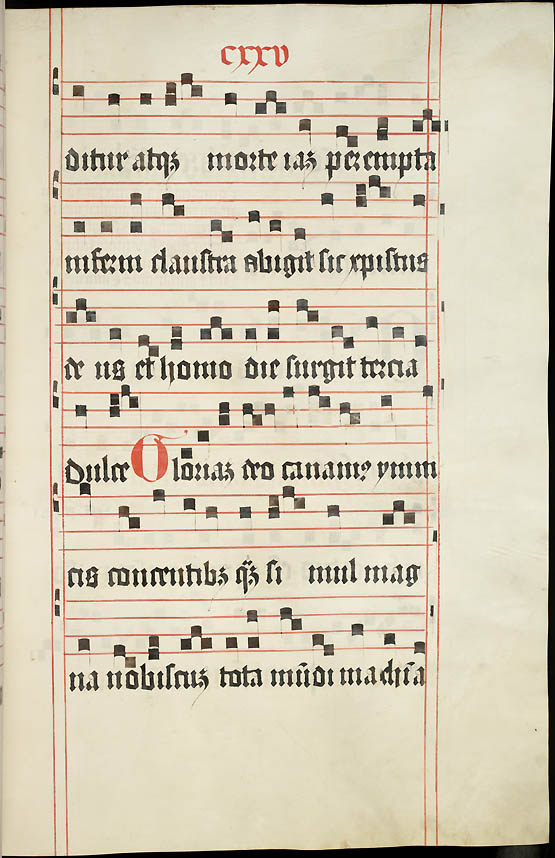 cxxv
ditur atqꝫ morte iaꝫ perempta
inferni claustra abigit sic xpistus
de us et homo die surgit tercia
dulce Gloriaꝫ deo canamꝰ ymni
cis concentibꝫ qꝫ si mul mag
na nobiscuꝫ tota mūdi machīa